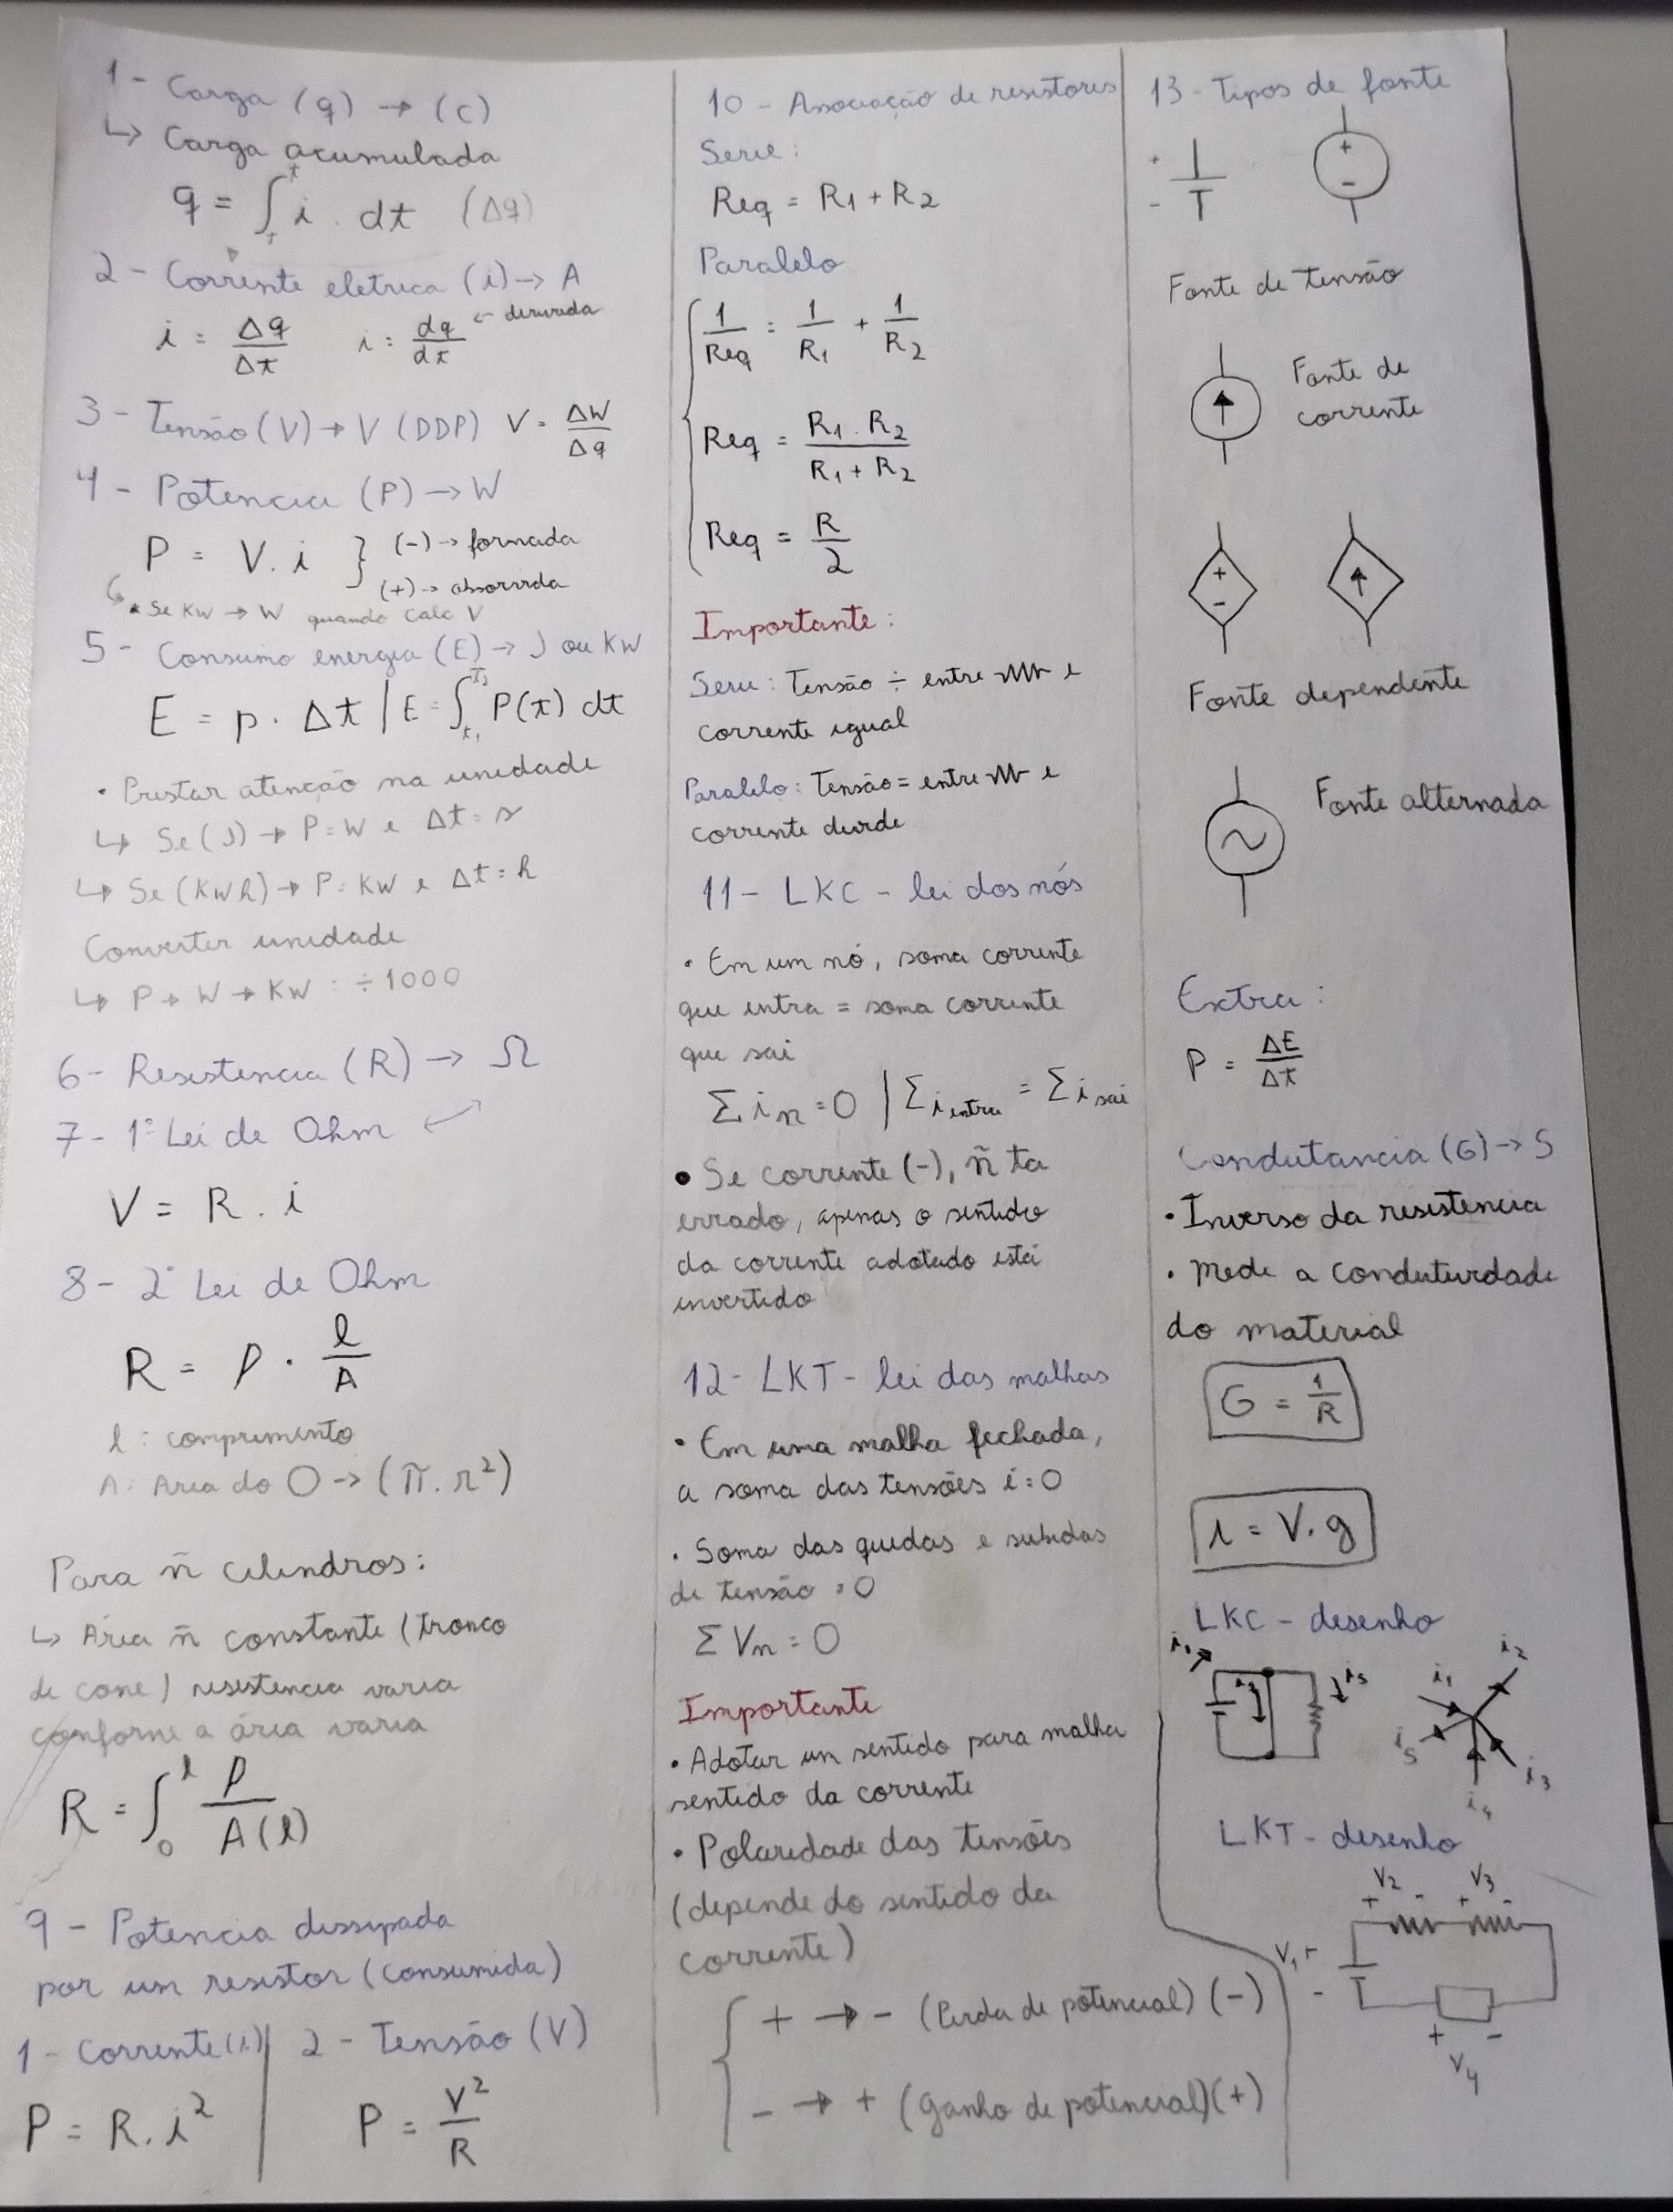 1 - Carga (q) → (C)
↳ Carga acumulada
q = ∫ i . dt (Δq)
2 - Corrente eletrica (i) → A
i = Δq/Δt i = dq/dt ← derivada
3 - Tensão (V) → V (DDP) V = ΔW/Δq
4 - Potencia (P) → W
P = V. i } (-) → fornecida
(+) → absorvida
* Se KW → W quando calc V
5 - Consumo energia (E) → J ou KW
E = p . Δt | E = ∫ P(t) dt
• Prestar atenção na unidade
↳ Se (J) → P = W e Δt = s
↳ Se (KWh) → P = KW e Δt = h
Converter unidade
↳ P → W → KW : ÷ 1000
6 - Resistencia (R) → Ω
7 - 1ª Lei de Ohm
V = R . i
8 - 2ª Lei de Ohm
R = ρ . l/A
l : comprimento
A : Area do O → (π. r²)
Para ñ cilindros:
↳ Área ñ constante (tronco
de cone) resistencia varia
conforme a área varia
R = ∫₀ˡ ρ/A(l)
9 - Potencia dissipada
por um resistor (consumida)
1 - Corrente (i) | 2 - Tensão (V)
P = R. i² P = V²/R
10 - Associação de resistores
Serie :
Req = R1 + R2
Paralelo
1/Req = 1/R1 + 1/R2
Req = R1 . R2/R1 + R2
Req = R/2
Importante :
Serie : Tensão ÷ entre e
corrente igual
Paralelo : Tensão = entre e
corrente divide
11 - LKC - lei dos nós
• Em um nó, soma corrente
que entra = soma corrente
que sai
Σ in = 0 | Σ i entra = Σ i sai
• Se corrente (-), ñ ta
errado, apenas o sentido
da corrente adotado está
invertido
12 - LKT - lei das malhas
• Em uma malha fechada,
a soma das tensões é = 0
• Soma das quedas e subidas
de tensão = 0
Σ Vn = 0
Importante
• Adotar un sentido para malha
sentido da corrente
• Polaridade das tensões
(depende do sentido da
corrente)
+ → - (Perda de potencial) (-)
- → + (ganho de potencial) (+)
13 - Tipos de fonte
+
-
+
-
Fonte de tensão
Fonte de
corrente
+
-
Fonte dependente
Fonte alternada
Extra :
P = ΔE/Δt
Condutancia (G) → S
• Inverso da resistencia
• Mede a condutividade
do material
G = 1/R
i = V. g
LKC - desenho
i1 i2 i3
i1 i2 i3 i4 i5
LKT - desenho
V2 V3
+ - + -
V1 +
-
+ -
V4